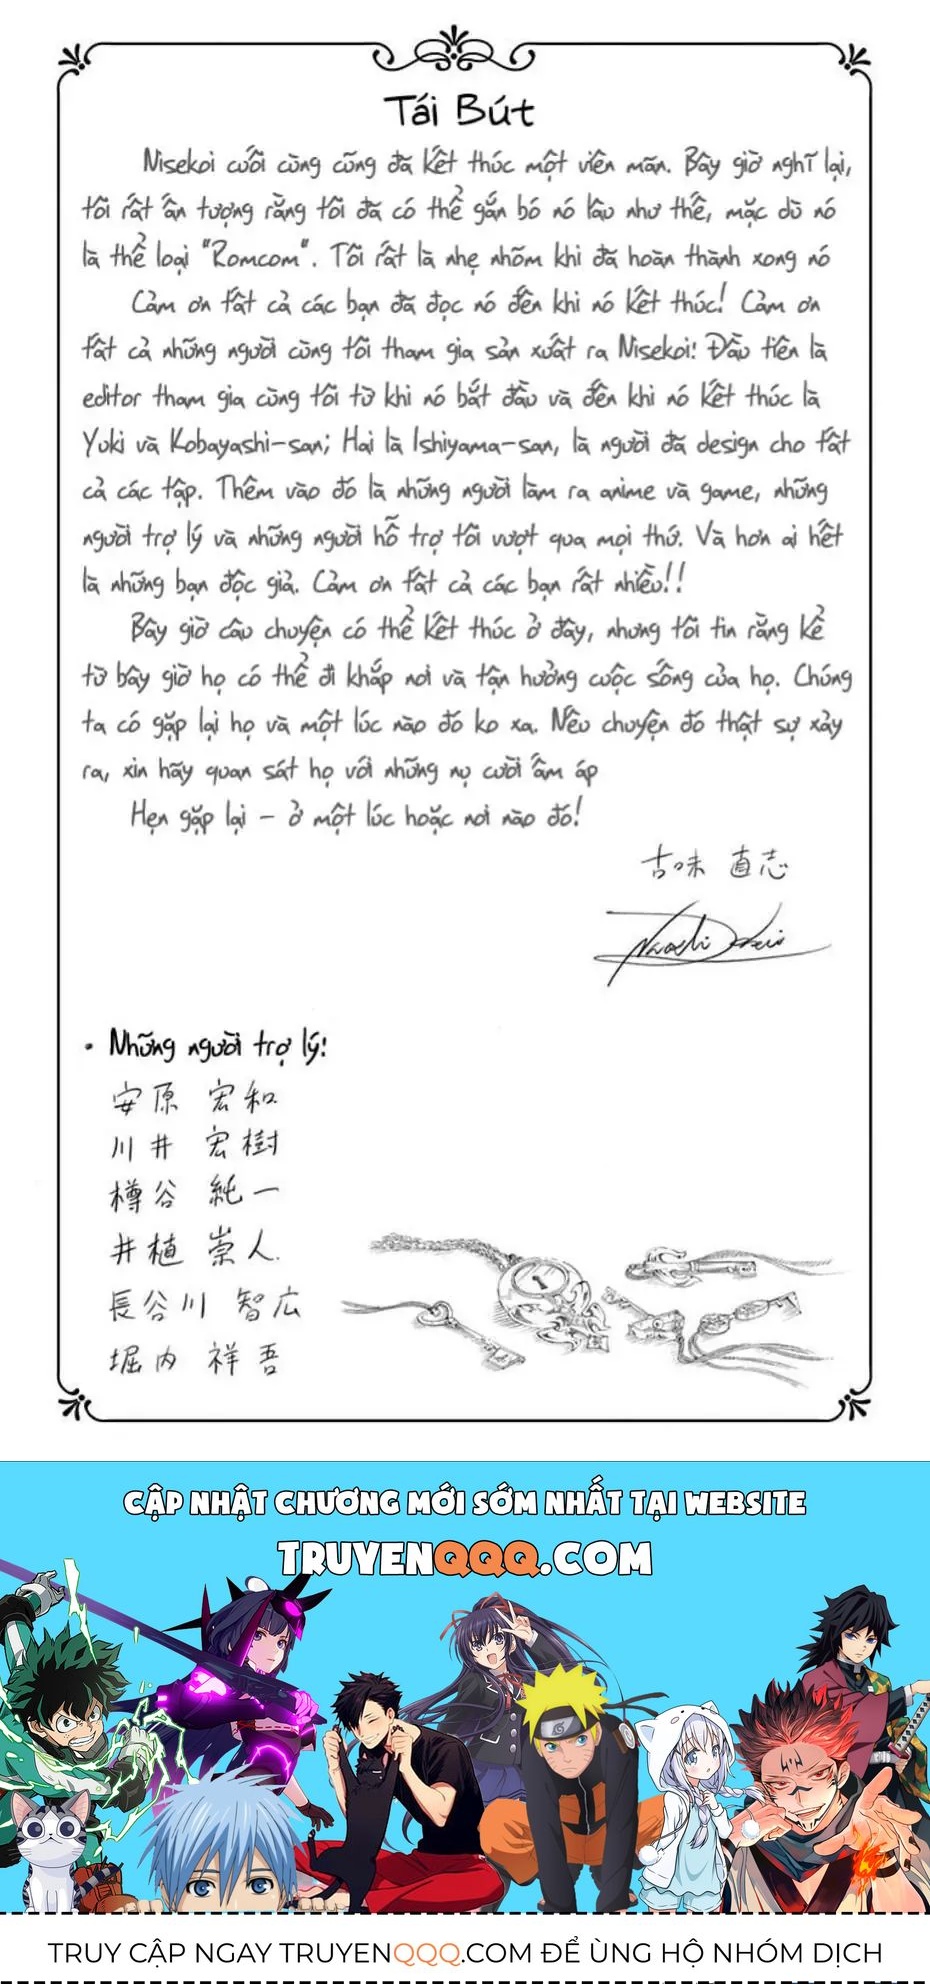 Tái Bút
Nisekoi cuối cùng cũng đã kết thúc một viên mãn. Bây giờ nghĩ lại,
tôi rất ấn tượng rằng tôi đã có thể gắn bó nó lâu như thế, mặc dù nó
là thể loại "Romcom". Tôi rất là nhẹ nhõm khi đã hoàn thành xong nó
Cảm ơn tất cả các bạn đã đọc nó đến khi nó kết thúc! Cảm ơn
tất cả những người cùng tôi tham gia sản xuất ra Nisekoi! Đầu tiên là
editor tham gia cùng tôi từ khi nó bắt đầu và đến khi nó kết thúc là
Yuki và Kobayashi-san; Hai là Ishiyama-san, là người đã design cho tất
cả các tập. Thêm vào đó là những người làm ra anime và game, những
người trợ lý và những người hỗ trợ tôi vượt qua mọi thứ. Và hơn ai hết
là những bạn độc giả. Cảm ơn tất cả các bạn rất nhiều!!
Bây giờ câu chuyện có thể kết thúc ở đây, nhưng tôi tin rằng kể
từ bây giờ họ có thể đi khắp nơi và tận hưởng cuộc sống của họ. Chúng
ta có gặp lại họ và một lúc nào đó ko xa. Nếu chuyện đó thật sự xảy
ra, xin hãy quan sát họ với những nụ cười ấm áp
Hẹn gặp lại - ở một lúc hoặc nơi nào đó!
古味 直志
Naoshi Komi
• Những người trợ lý:
安原 宏和
川井 宏樹
樽谷 純一
井植 崇人
長谷川 智広
堀内 祥吾
CẬP NHẬT CHƯƠNG MỚI SỚM NHẤT TẠI WEBSITE
TRUYENQQQ.COM
TRUY CẬP NGAY TRUYENQQQ.COM ĐỂ ÙNG HỘ NHÓM DỊCH